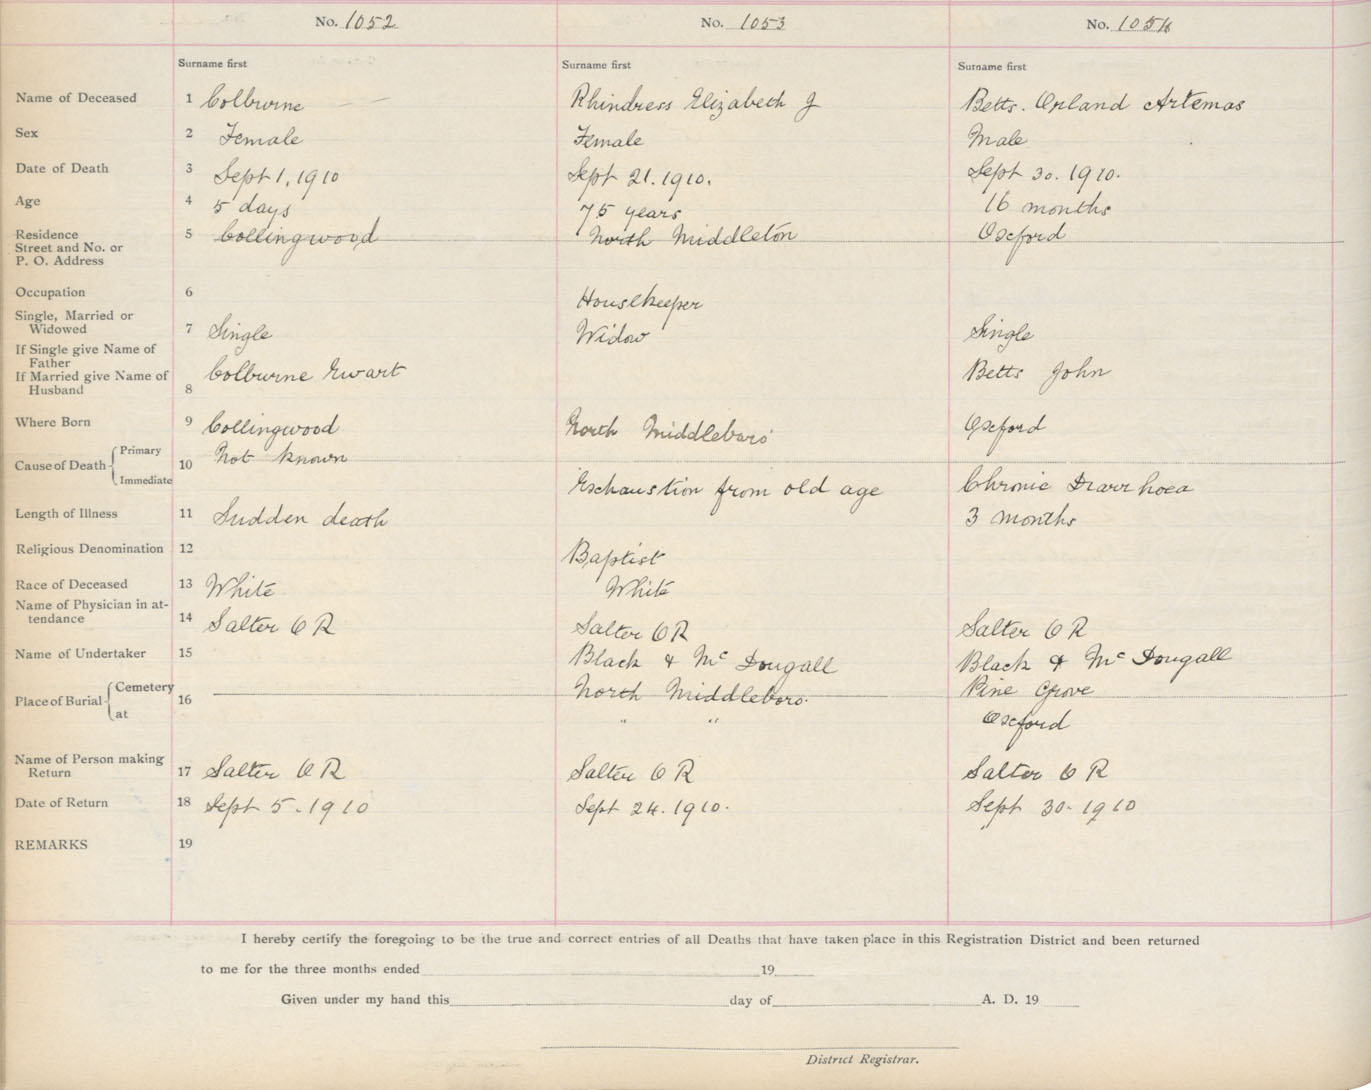 No. 1052 No. 1053 No. 1054
Surname first Surname first Surname first
Name of Deceased 1 Colburne — — Rhindress Elizabeth J Betts. Orland Artemas
Sex 2 Female Female Male
Date of Death 3 Sept 1, 1910 Sept 21. 1910. Sept 30. 1910.
Age 4 5 days 75 years 16 months
Residence
Street and No. or 5 Collingwood North Middleton Oxford
P. O. Address
Occupation 6 Housekeeper
Single, Married or
Widowed 7 Single Widow Single
If Single give Name of
Father
If Married give Name of Colburne Ewart Betts John
Husband 8
Where Born 9 Collingwood North Middleboro Oxford
Primary Not known
Cause of Death 10
Immediate Exchaustion from old age Chronic Diarrhoea
Length of Illness 11 Sudden death 3 months
Religious Denomination 12 Baptist
Race of Deceased 13 White White
Name of Physician in at-
tendance 14 Salter O R Salter O R Salter O R
Name of Undertaker 15 Black & Mc Dougall Black & Mc Dougall
Cemetery North Middleboro. Pine Grove
Place of Burial 16
at " " Oxford
Name of Person making
Return 17 Salter O R Salter O R Salter O R
Date of Return 18 Sept 5. 1910 Sept 24. 1910. Sept 30. 1910
REMARKS 19
I hereby certify the foregoing to be the true and correct entries of all Deaths that have taken place in this Registration District and been returned
to me for the three months ended 19
Given under my hand this day of A. D. 19
District Registrar.